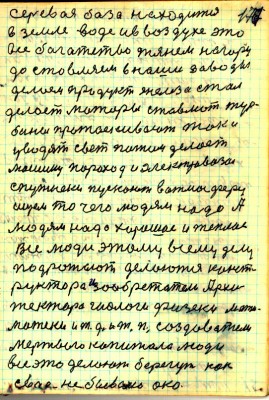 серевая база находится 177
в земле воде и в воздухе это
все багатство тянем нагору
до ставляем в наши заводы
делоем продукт железа стал
делоет маторы ставлют тур
бины протаскивают ток и
уводят свет патим делоет
машину пароход и электровозы
спутники пускают ватмасферу
ищем то чего людям надо А
людям надо харошае и теплое
Все люди этому всему делу
подрожают делоются конст
руктора изообретатели Архи
тектора гиологи физики мате
матики и т. д. и т. п. создователи
мертвого капитала люди
все это делоют берегут как
свое не бывало око